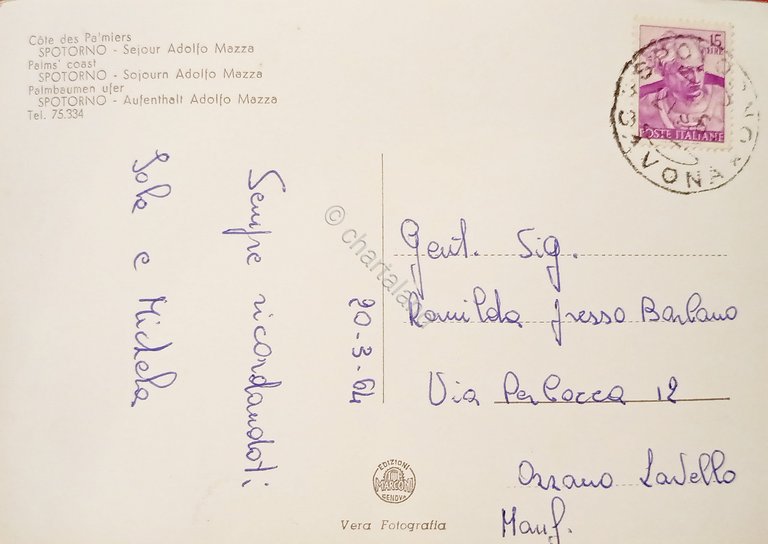 Côte des Palmiers
SPOTORNO - Sejour Adolfo Mazza
Palms' coast
SPOTORNO - Sojourn Adolfo Mazza
Palmbaumen ufer
SPOTORNO - Aufenthalt Adolfo Mazza
Tel. 75.334
15
LIRE
POSTE ITALIANE
SPOTORNO
SAVONA
Sempre ricordandoti
e Michela
20-3-64
© chartaland
Gent. Sig.
Romilda presso Barbano
Via 12
Ozzano
EDIZIONI
MARCONI
GENOVA
Vera Fotografia